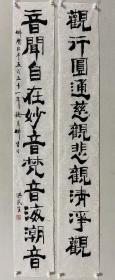 觀行圓通慈觀悲觀清淨觀
音聞自在妙音梵音海潮音